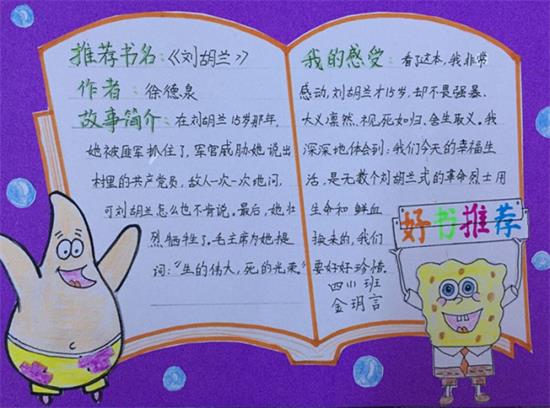 推荐书名:《刘胡兰》
作者:徐德泉
故事简介:在刘胡兰15岁那年,
她被匪军抓住了,军官威胁她说出
村里的共产党员,敌人一次一次地问,
可刘胡兰怎么也不肯说。最后,她壮
烈牺牲了。毛主席为她提
词:“生的伟大,死的光荣。”
我的感受:看了这本,我非常
感动,刘胡兰才15岁,却不畏强暴、
大义凛然、视死如归、舍生取义。我
深深地体会到:我们今天的幸福生
活,是无数个刘胡兰式的革命烈士用
生命和鲜血
换来的,我们
要好好珍惜。
四(1)班
金玥言
好书推荐